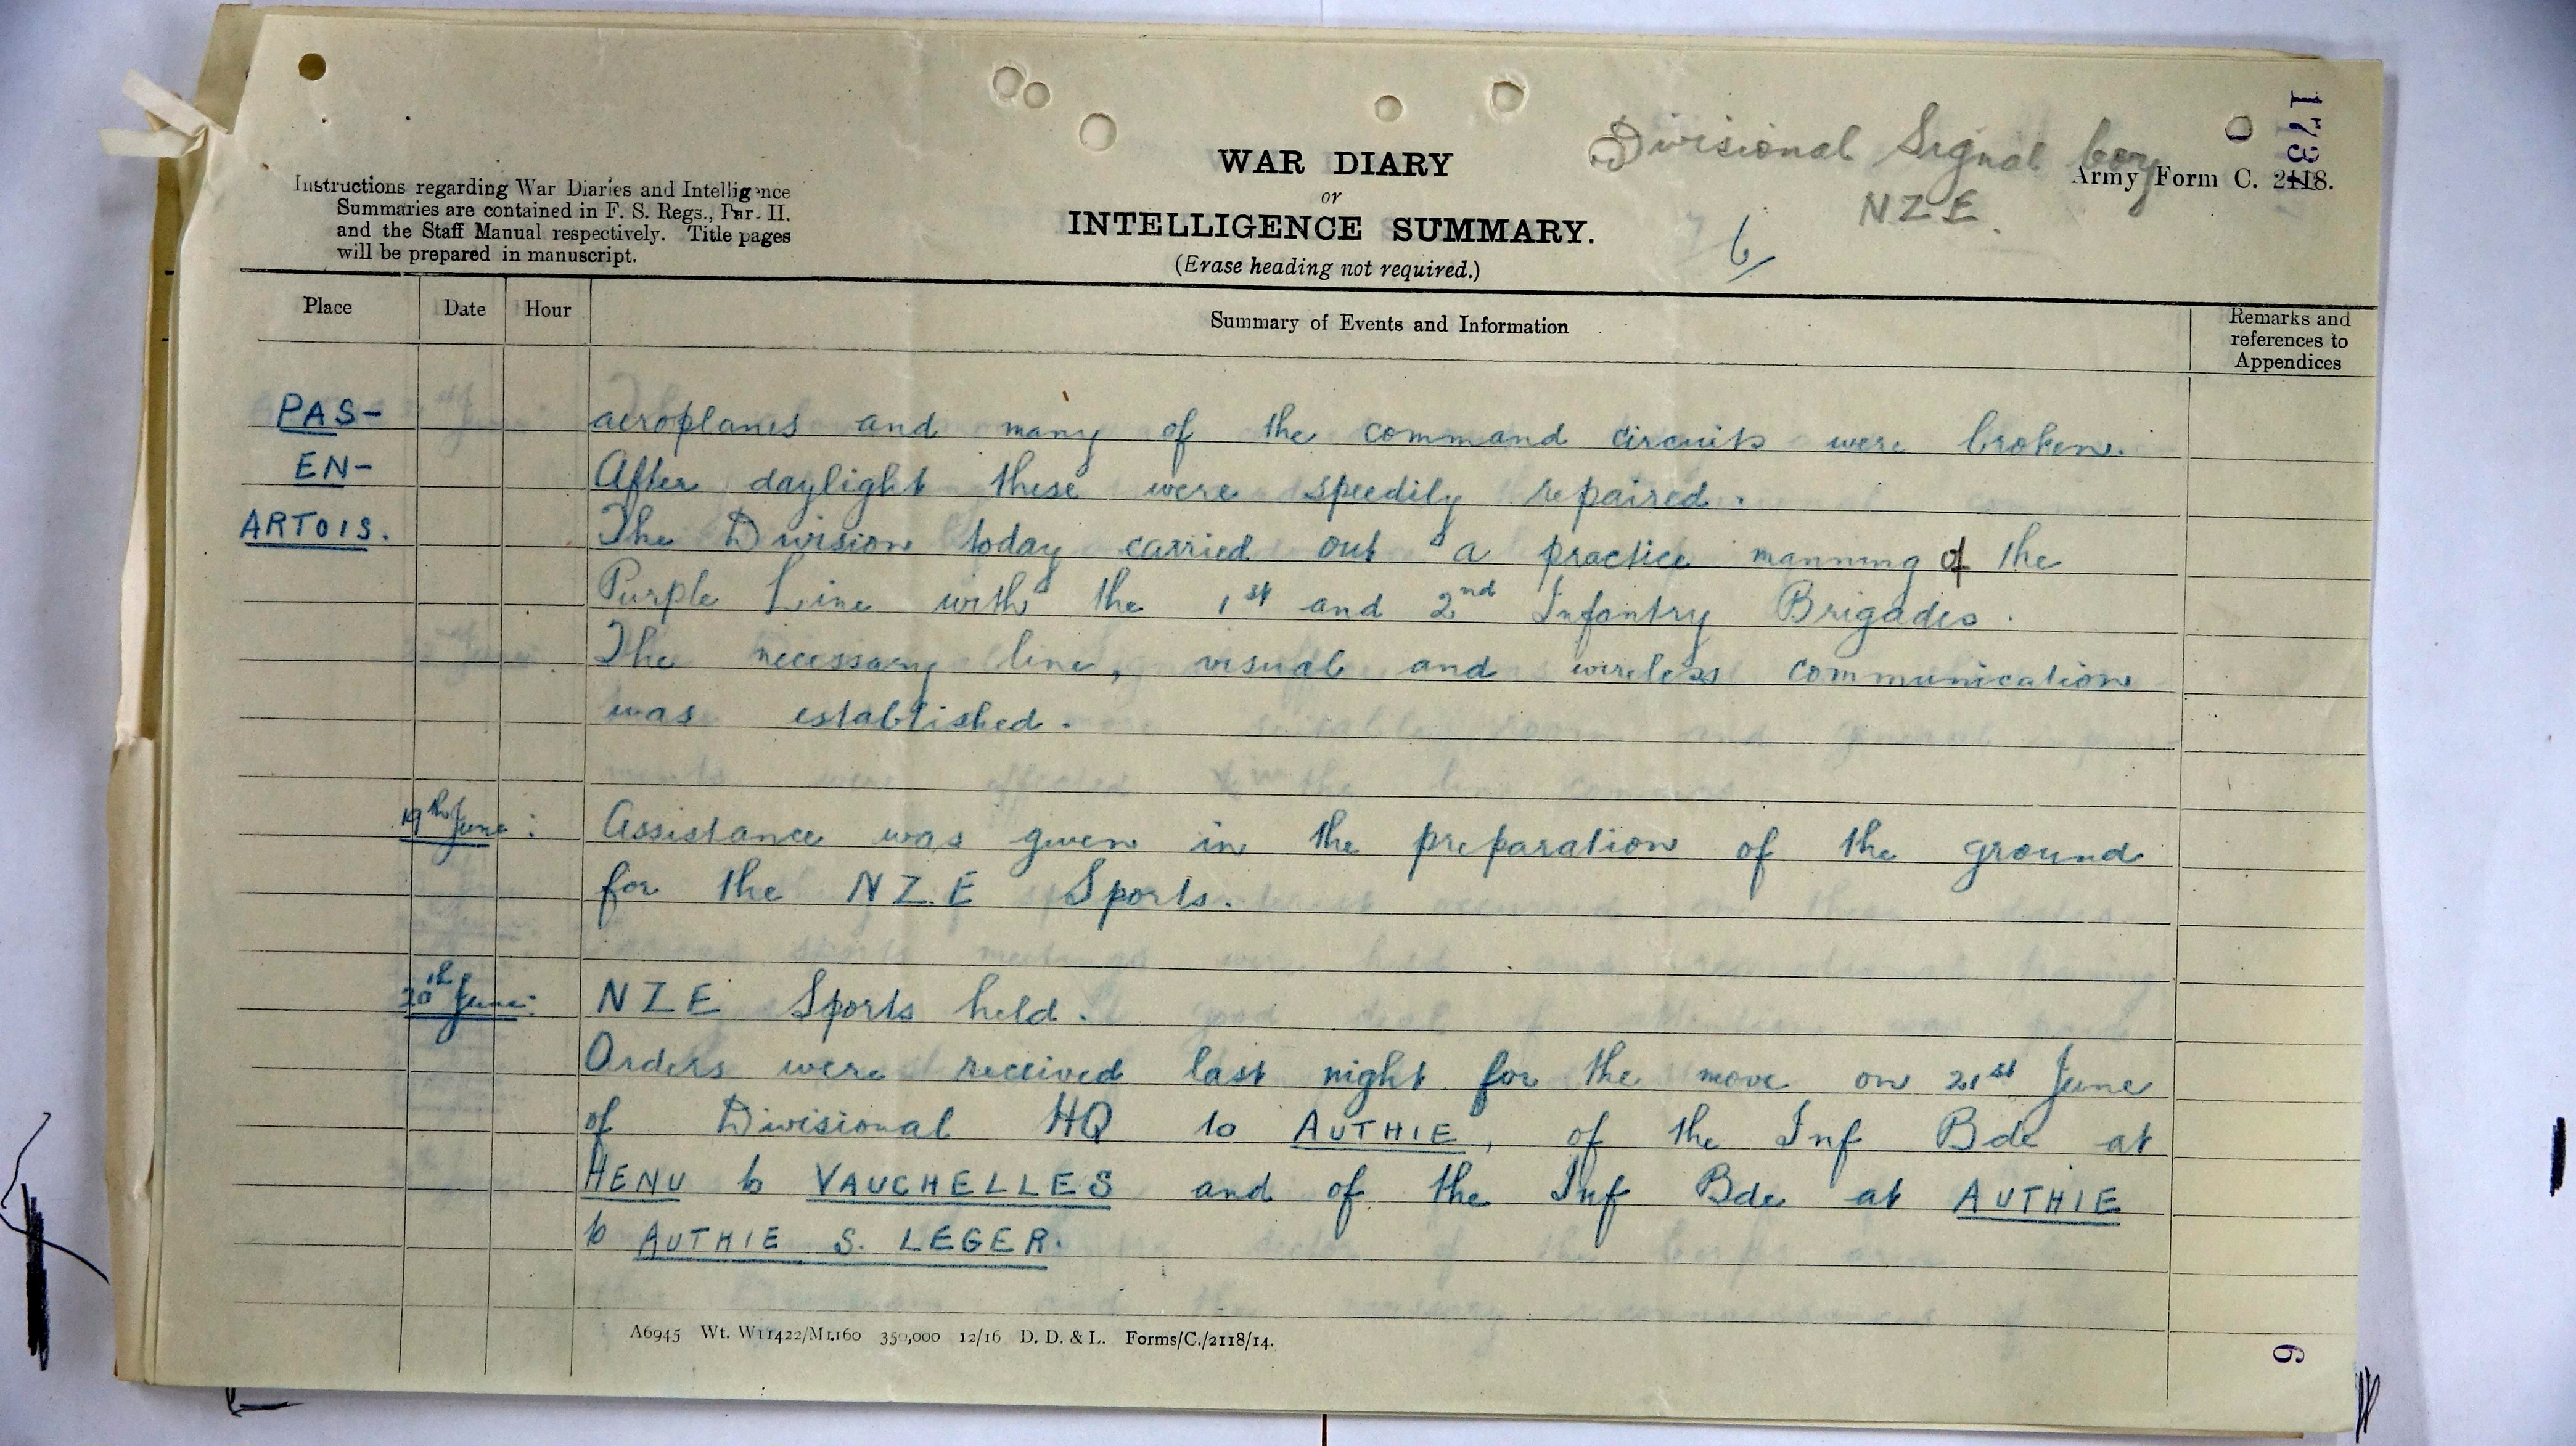 Divisional Signal Coy
NZE.
6/
1737
Army Form C. 2118.
WAR DIARY
or
INTELLIGENCE SUMMARY.
(Erase heading not required.)
Instructions regarding War Diaries and Intelligence
Summaries are contained in F. S. Regs., Par. II.
and the Staff Manual respectively. Title pages
will be prepared in manuscript.
Place Date Hour Summary of Events and Information Remarks and references to Appendices
PAS- aeroplanes and many of the command circuits were broken.
EN- After daylight these were speedily repaired.
ARTOIS. The Division today carried out a practice manning of the
Purple Line with the 1st and 2nd Infantry Brigades.
The necessary line, visual and wireless communication
was established.
19th June: Assistance was given in the preparation of the ground
for the N.Z.E Sports.
20th June: NZE Sports held.
Orders were received last night for the move on 21st June
of Divisional HQ to AUTHIE, of the Inf Bde at
HENU to VAUCHELLES and of the Inf Bde at AUTHIE
to AUTHIE S. LEGER.
A6945 Wt. W11422/M1160 350,000 12/16 D. D. & L. Forms/C./2118/14.
6